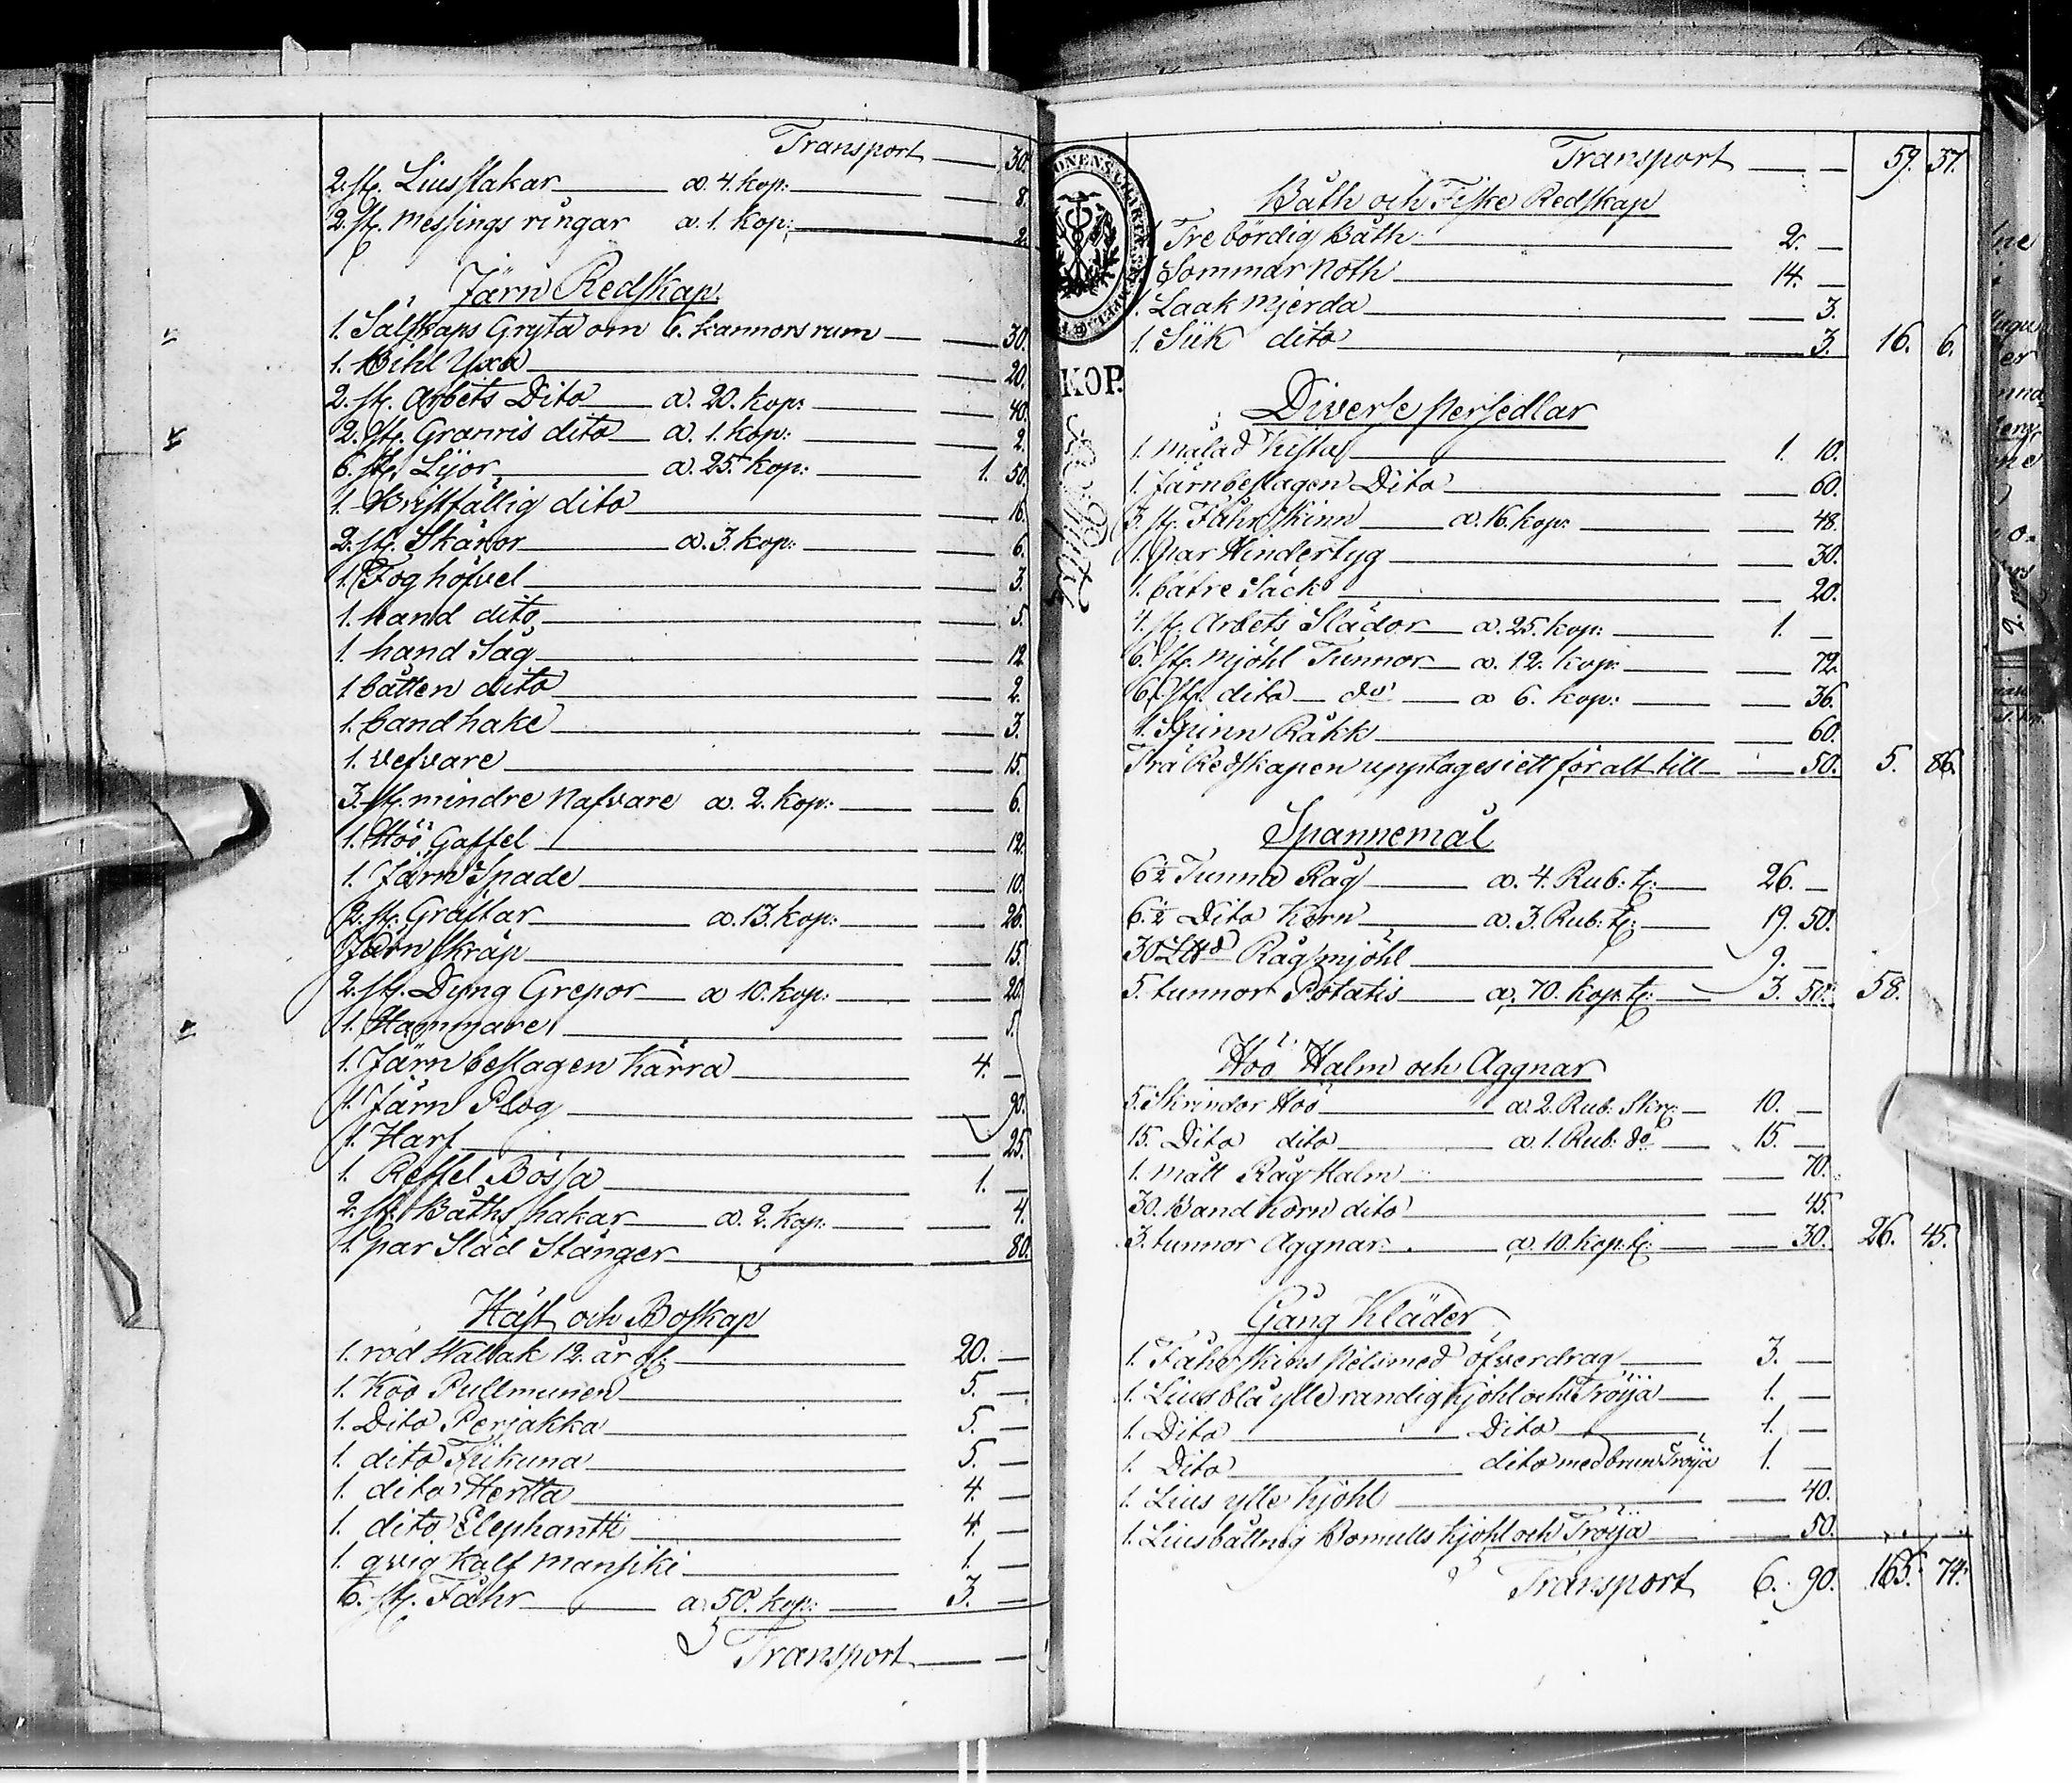 Transport — 30.
2. st. Liusstakar — a. 4. kop: — 8.
2. st. Messings ringar a. 1. kop: — 2.
Järn Redskap.
1. Sälskaps Gryta om 6. kannors rum — 30.
1. Bihl Yxa — 20.
2. st. Arbets Dito — a. 20. kop: — 40.
2. st. Granris dito — a. 1. kop: — 2.
6. st. Lijor — a. 25. kop: — 1. 50.
1. Bristfällig dito — 16.
2. st. Skäror — a. 3. kop: — 6.
1. Foghöfvel — 3.
1. hand dito — 5.
1. hand Såg — 12.
1. båtten dito — 2.
1. bandhake — 3.
1. vefvare — 15.
3. st. mindre Nafvare a. 2. kop: — 6.
1. Höö Gaffel — 12.
1. Järn Spade — 10.
2. st. Gräftar — a. 13. kop: — 26.
Järn Skräp — 15.
2. st. Dyng Grepor — a 10. kop: — 20.
1. Hammare — 5.
1. Järn beslagen Kärra — 4. —
1. Järn Plog — 90.
1. Harf — 25.
1. Reffel Bössa — 1. —
2. st. Båths hakar — a. 2. kop: — 4.
1. par Släd Stänger — 80.
Häst och Boskap
1. röd Wallak 12. år gl: — 20. —
1. Koo Pullmunen — 5. —
1. Dito Perjakka — 5. —
1. dito Tükuna — 5. —
1. dito Hertta — 4. —
1. dito Elephantti — 4. —
1. qvig kalf Mansiki — 1. —
6. st. Fåhr — a. 50. kop: — 3. —
Transport — —
Transport — — 59. 37.
Båth och Fiske Redskap
1 Trebördig Båth — 2. —
1 Sommar Noth — 14. —
1. Laak Mjerda — 3.
1. Siik dito — 3. 16. 6.
KOP.
Diverse persedlar
1. målad Kista — 1. 10.
1. Järnbeslagen Dito — 60.
3. st. Fåhrskinn — a. 16. kop: — 48.
1. par Hindertyg — 30.
1. bätre Säck — 20.
4. st. Arbets Slädor — a. 25. kop: — 1. —
6. st. Mjöhl Tunnor — a. 12. kop: — 72.
6. st. dito — do — a 6. kop: — 36.
1. Spinn Råkk — 60.
Trä Redskapen upptages i ett för alt till — 50. 5. 86.
Spannemål
6 ½ Tunna Råg — a. 4. Rub: t: — 26. —
6. ½ Dito Korn — a. 3. Rub: t: — 19. 50.
30 L℔ Råg mjöhl — 9. —
5. tunnor Potatis — a. 70. kop. t: — 3. 50. 58.
Höö Halm och Aggnar
5. Skrindor Höö — a. 2. Rub: Skr: — 10. —
15. Dito dito — a. 1. Rub: do — 15. —
1. mått Råg Halm — 70.
30. Band Korn dito — 45.
3. tunnor Aggnar — a. 10. kop. t: — 30. 26. 45.
Gång Kläder
1. Fåhrskins pels med öfverdrag — 3. —
1. Lius blå ylle randig kjohl och Tröija — 1. —
1. Dito — Dito — 1. —
1. Dito — dito med brun Tröja 1. —
1. Lius ylle kjohl — 40.
1. Lius båttnig Bomulls kjohl och Tröija — 50.
Transport 6. 90. 165. 74.